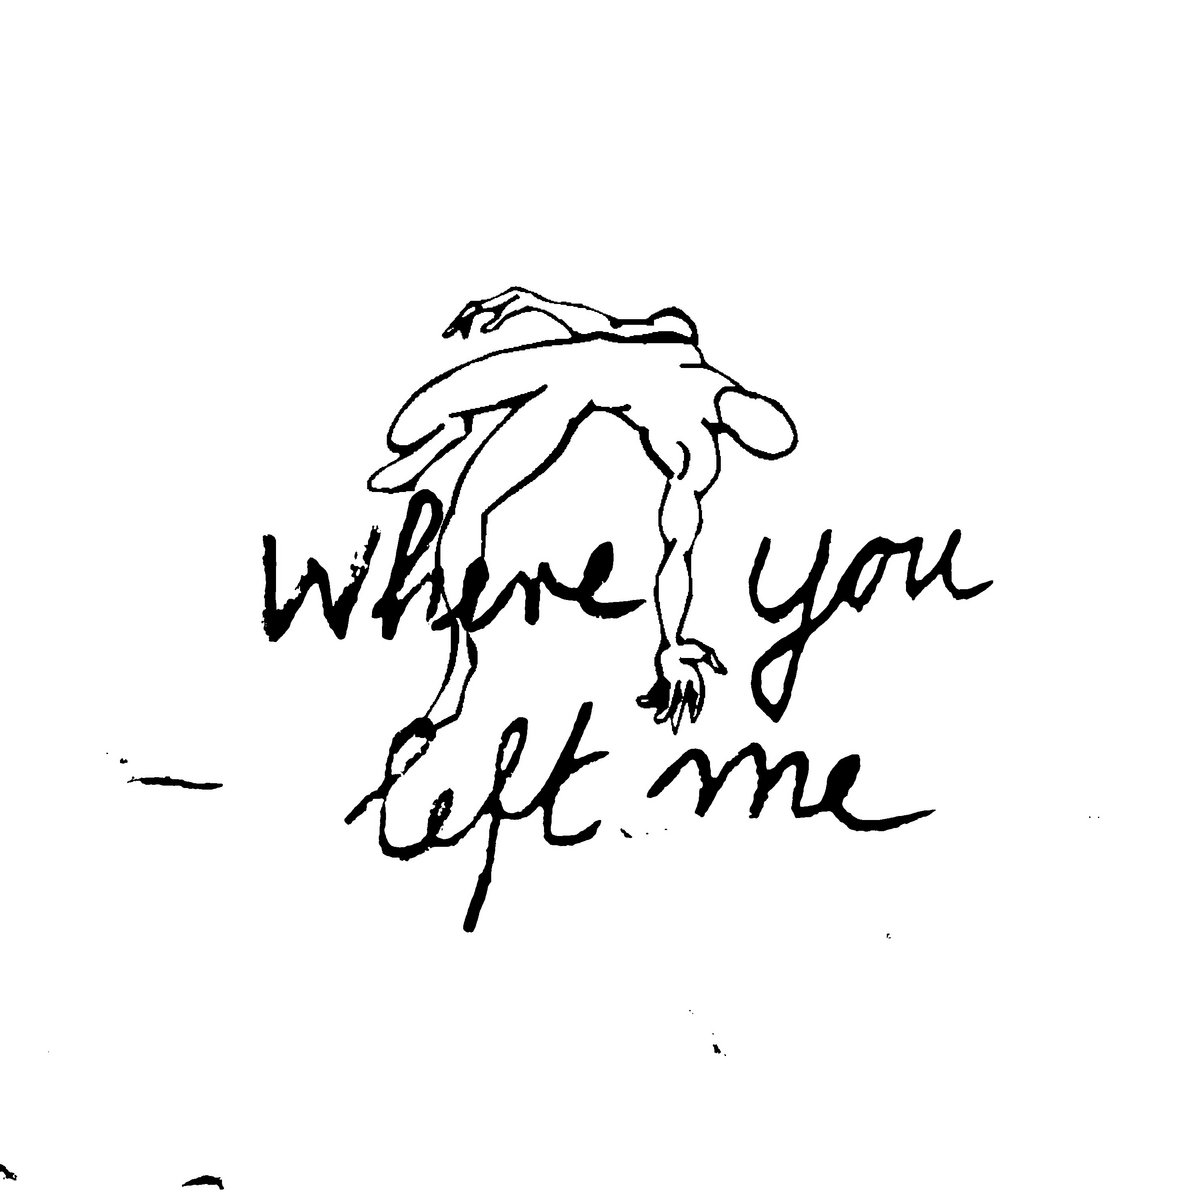 where you
left me